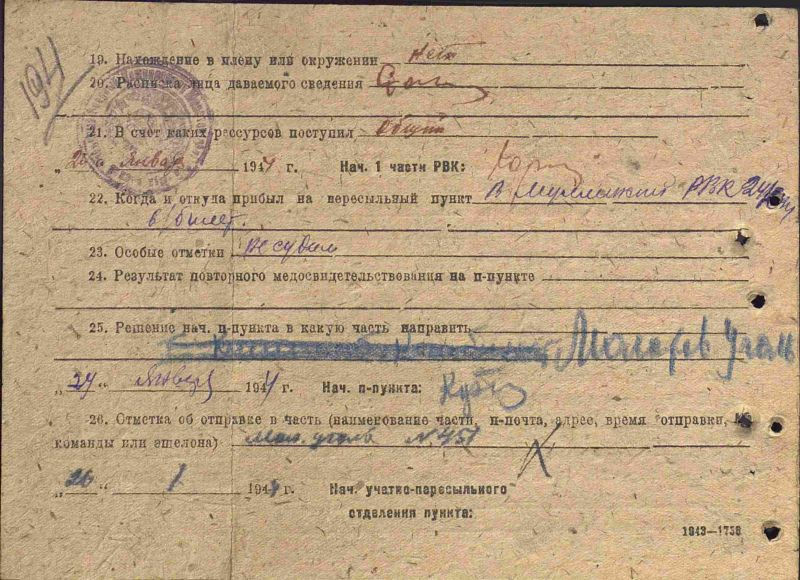 194
19. Нахождение в плену или окружении нет
20. Расписка лица даваемого сведения
21. В счет каких рессурсов поступил общий
„20“ январ 1944 г. Нач. 1 части РВК:
22. Когда и откуда прибыл на пересыльный пункт В РВК 24/I
б/билет.
23. Особые отметки не судим
24. Результат повторного медосвидетельствования на п-пункте
25. Решение нач. п-пункта в какую часть направить
Молотов Уголь
„24“ января 1944 г. Нач. п-пункта:
26. Отметка об отправке в часть (наименование части, п-почта, адрес, время отправки, №
команды или эшелона) Мол. уголь N 451
„26“ 1 1944 г. Нач. учатно-пересыльного
отделения пункта:
1943—1758